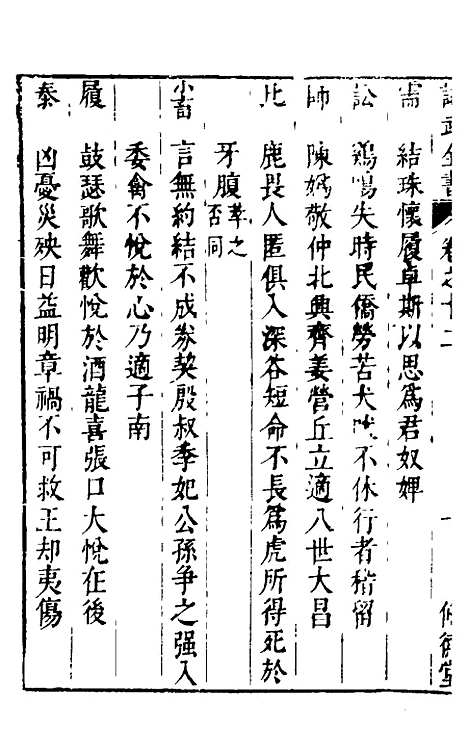 卷之廿二 一
需 結珠懷履卓斯以思爲君奴婢
訟 鷄鳴失時民僑勞苦犬吠不休行者稽留
師 陳嬀敬仲北興齊姜營丘立適八世大昌
比 鹿畏人匿俱入深谷短命不長爲虎所得死於
牙腹萃之否同
小畜 言無約結不成券契殷叔季妃公孫争之强入
委禽不悅於心乃適子南
履 鼓瑟歌舞歡悅於酒龍喜張口大悅在後
泰 凶憂災殃日益明章禍不可救王却夷傷